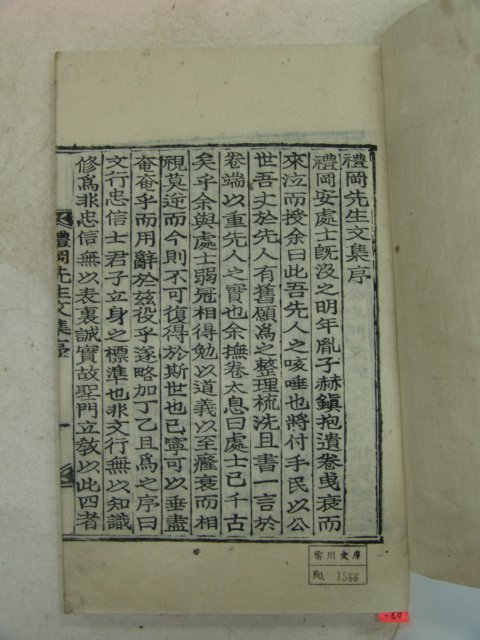 禮岡先生文集序
禮岡安處士旣沒之明年胤子赫鎭抱遺卷曳衰而
來泣而授余曰此吾先人之咳唾也將付手民以公
世吾丈於先人有舊願爲之整理梳洗且書一言於
卷端以重先人之實也余撫卷太息曰處士已千古
矣乎余與處士弱冠相得勉以道義以至癃衰而相
視莫逆而今則不可復得於斯世也已寧可以垂盡
奄奄乎而用辭於玆役乎遂略加丁乙且爲之序曰
文行忠信士君子立身之標準也非文行無以知識
修爲非忠信無以表裏誠實故聖門立敎以此四者
禮岡先生文集序 一
雲川文庫
No. 1566
-60